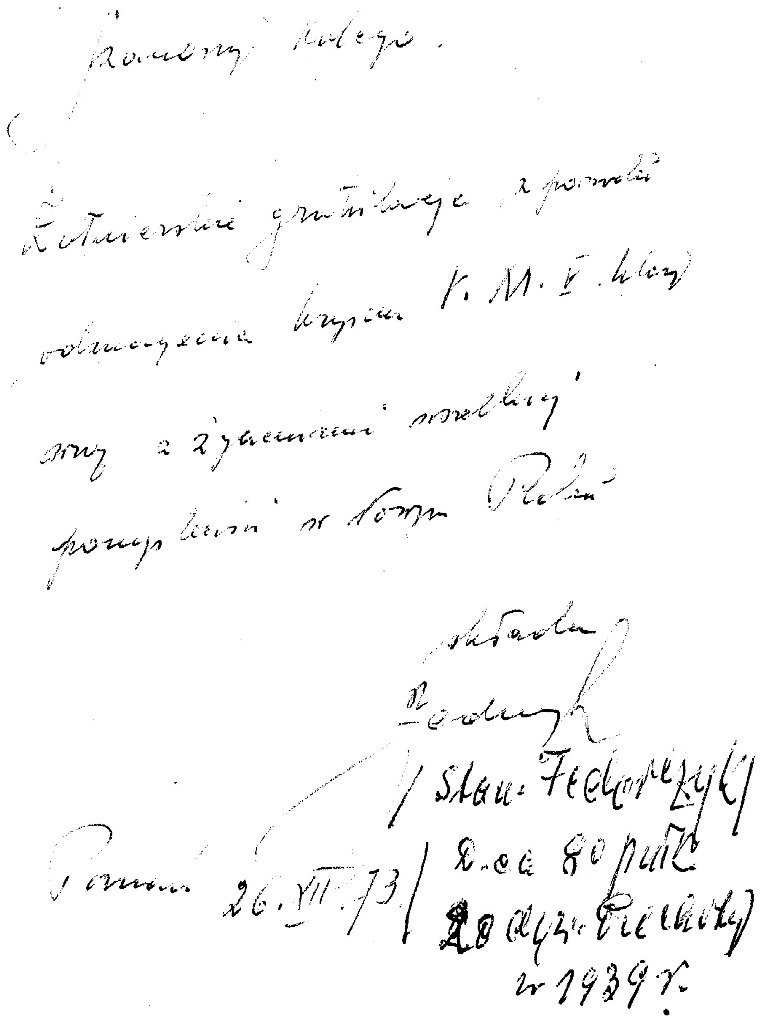 Szanowny Kolego.
Żołnierskie gratulacje z powodu
odznaczenia krzyżem V. M. V. klasy
wraz z życzeniami wszelkiej
pomyślności w Nowym Roku
składa
/ Stan. Fedorczyk /
D-ca 80 pułk
20 dyw. Piechoty
w 1939 r.
Poznań 26.XII.73.